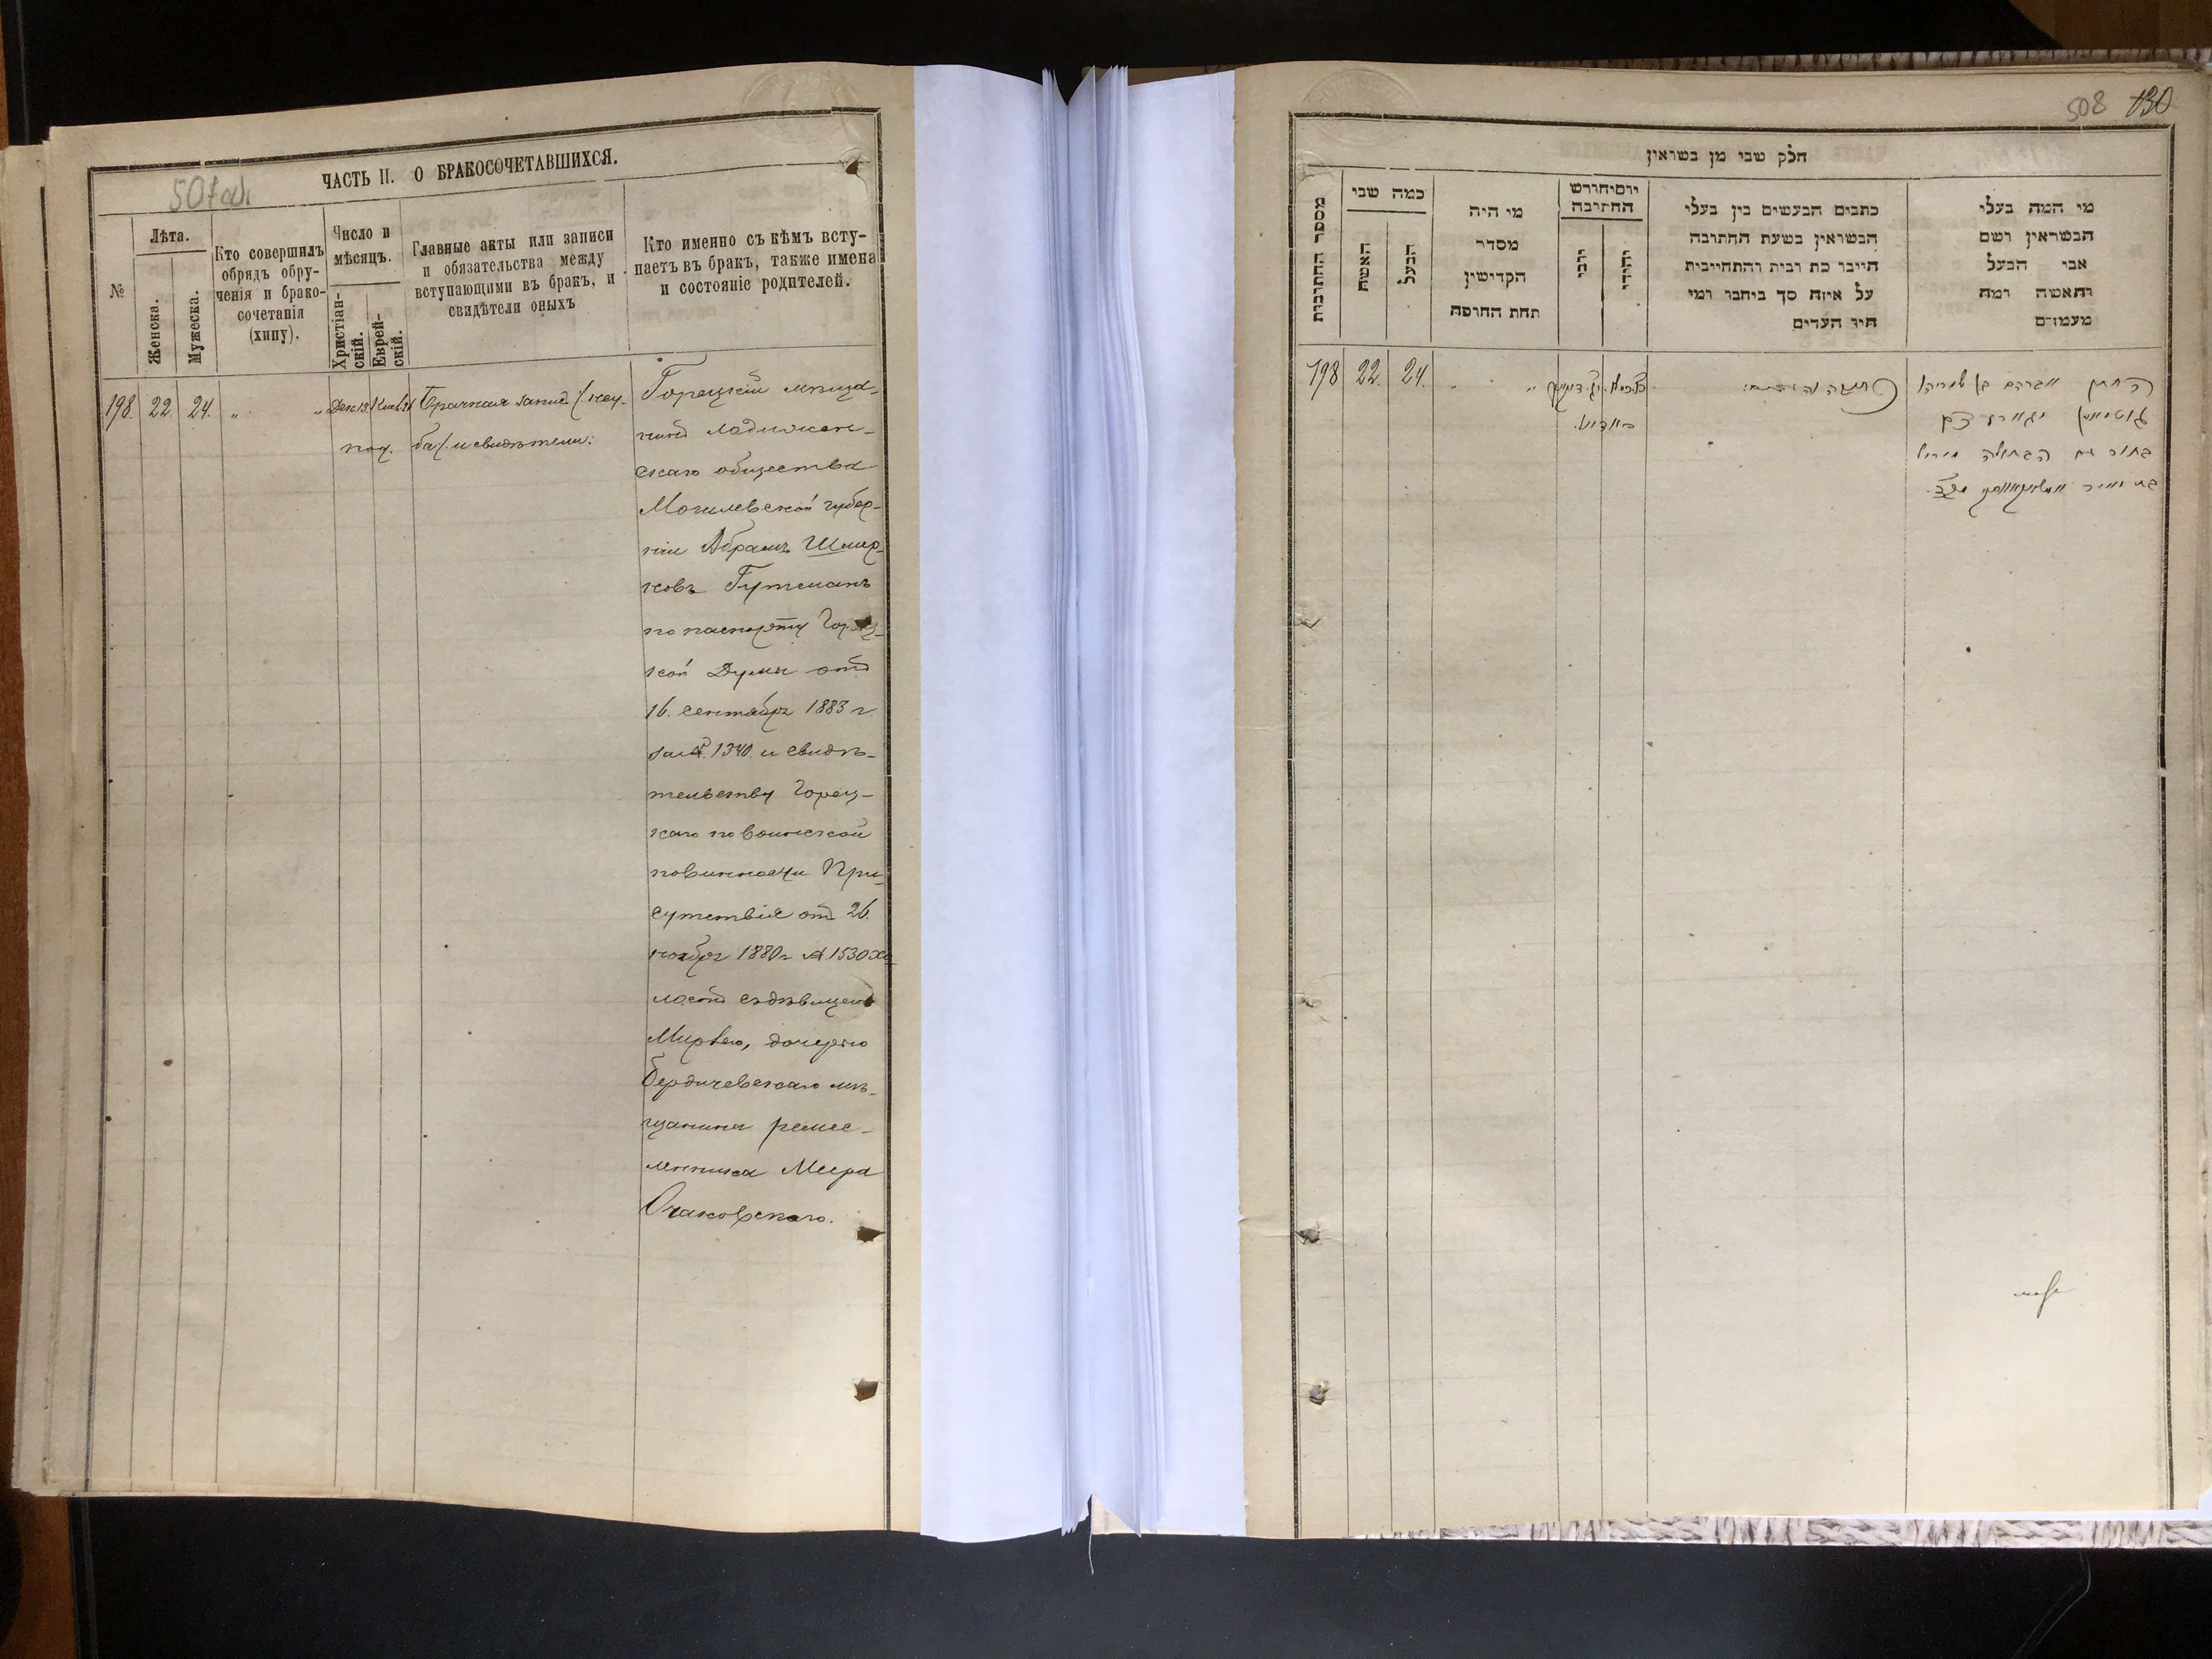 507об
ЧАСТЬ II. О БРАКОСОЧЕТАВШИХСЯ.
№
Лѣта.
Женска.
Мужеска.
Кто совершилъ
обрядъ обру-
ченія и брако-
сочетанія
(хипу).
Число и
мѣсяцъ.
Христіан-
скій.
Еврей-
скій.
Главные акты или записи
и обязательства между
вступающими въ бракъ, и
свидѣтели оныхъ
Кто именно съ кѣмъ всту-
паетъ въ бракъ, также имена
и состояніе родителей.
198. 22. 24. " " Дек. 13
Брачная запис (кеу-
ба) и свидѣтели.
Горецкій мѣща-
нинъ
скаго общества
Могилевской губер-
ніи Абрамъ Шмер-
ковъ Гутманъ
по паспорту Горец-
кой Думы отъ
16. сентября 1883 г.
за № 1340. и свидѣ-
тельству Горец-
каго по воинской
повинности При-
сутствія отъ 26.
ноября 1880 г. № 1530 хо-
лостъ съ дѣвицею
Мирлею, дочерью
Бердичевскаго мѣ-
щанина ремес-
ленника Меера
Очаковскаго.
508 130
חלק שני מן נשואין
מספר החתונות
כמה שני
האשה
הבעל
מי היה
מסדר
הקדישין
תחת החופה
יום וחודש
החתונה
יהודי
כתבים הנעשים בין בעלי
הנשואין בשעת החתונה
היינו כת ובית והתחייבית
על איזה סך ביחבר ומי
היו העדים
מי המה בעלי
הנשואין ושם
אבי הבעל
והאשה ומה
מעמדם
198 22. 24. " "
החתן אברהם בן שמריהו
גוטמאן
בחור עם הבתולה מירל
בת מאיר אטשאקאווסקי